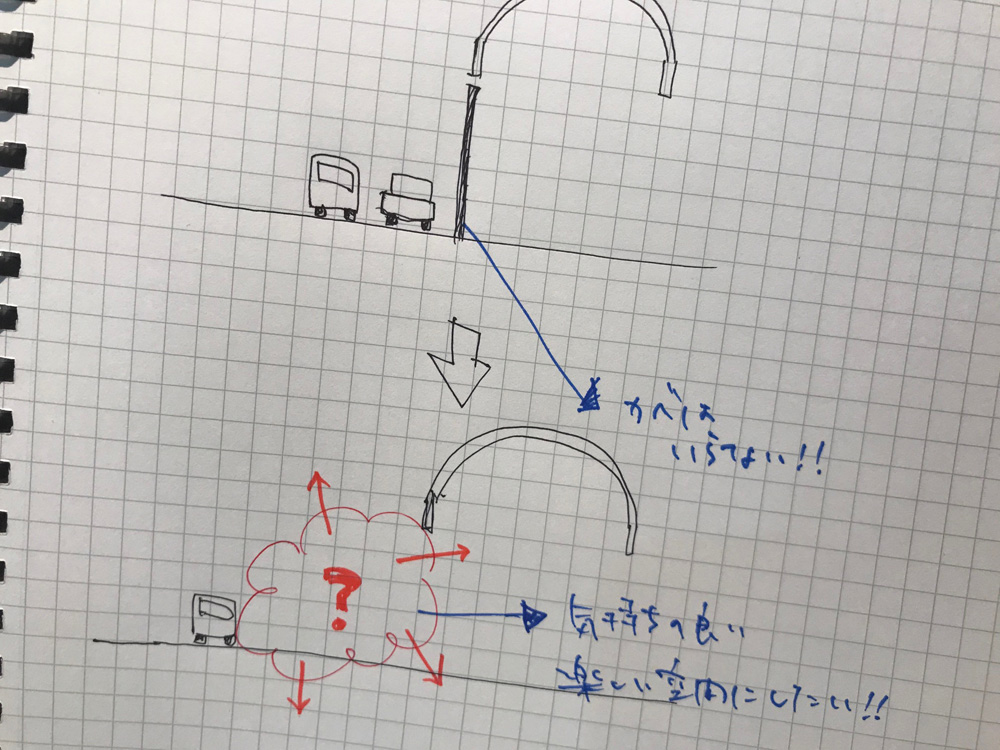 カベは
いらない!!
?
気持ちの良い
楽しい空間にしたい!!